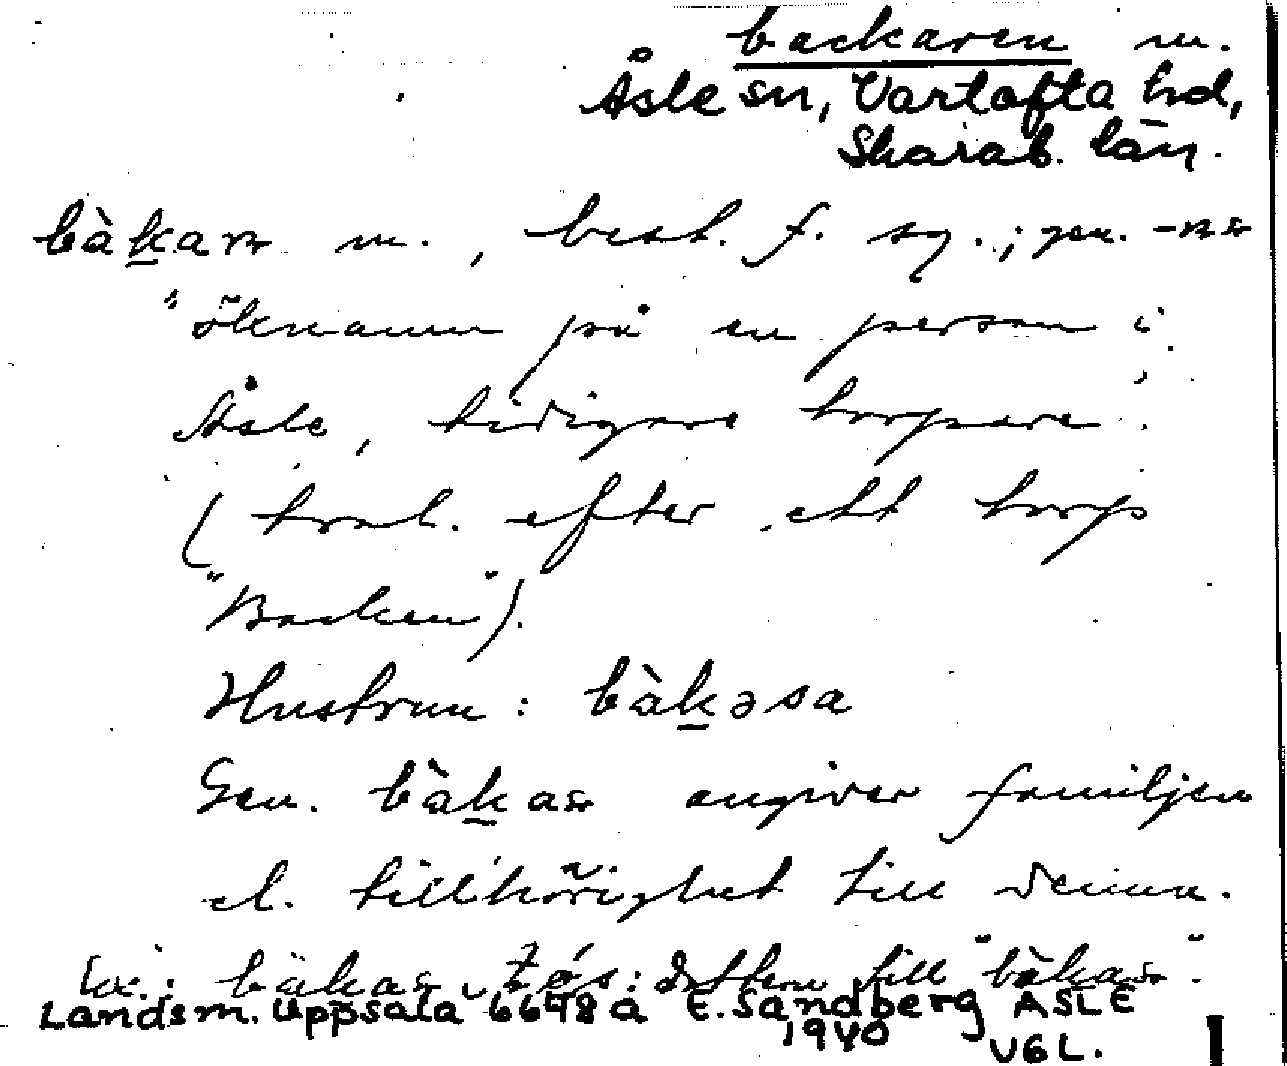 backaren m.
Åsle sn, Vartofta hd,
Skarab. län.
bàkarn m., best. f. sg.; gen. -ns
"öknamn på en person i
Åsle, tidigare torpare"
(trol. efter ett torp
"Backen").
Hustrun: bàkəsa
Gen. bàkas angiver familjen
el. tillhörighet till denna.
bàkas : dottern till "bàkas".
Landsm. Uppsala 6678 a E. Sandberg ÅSLE
1940 VGL.